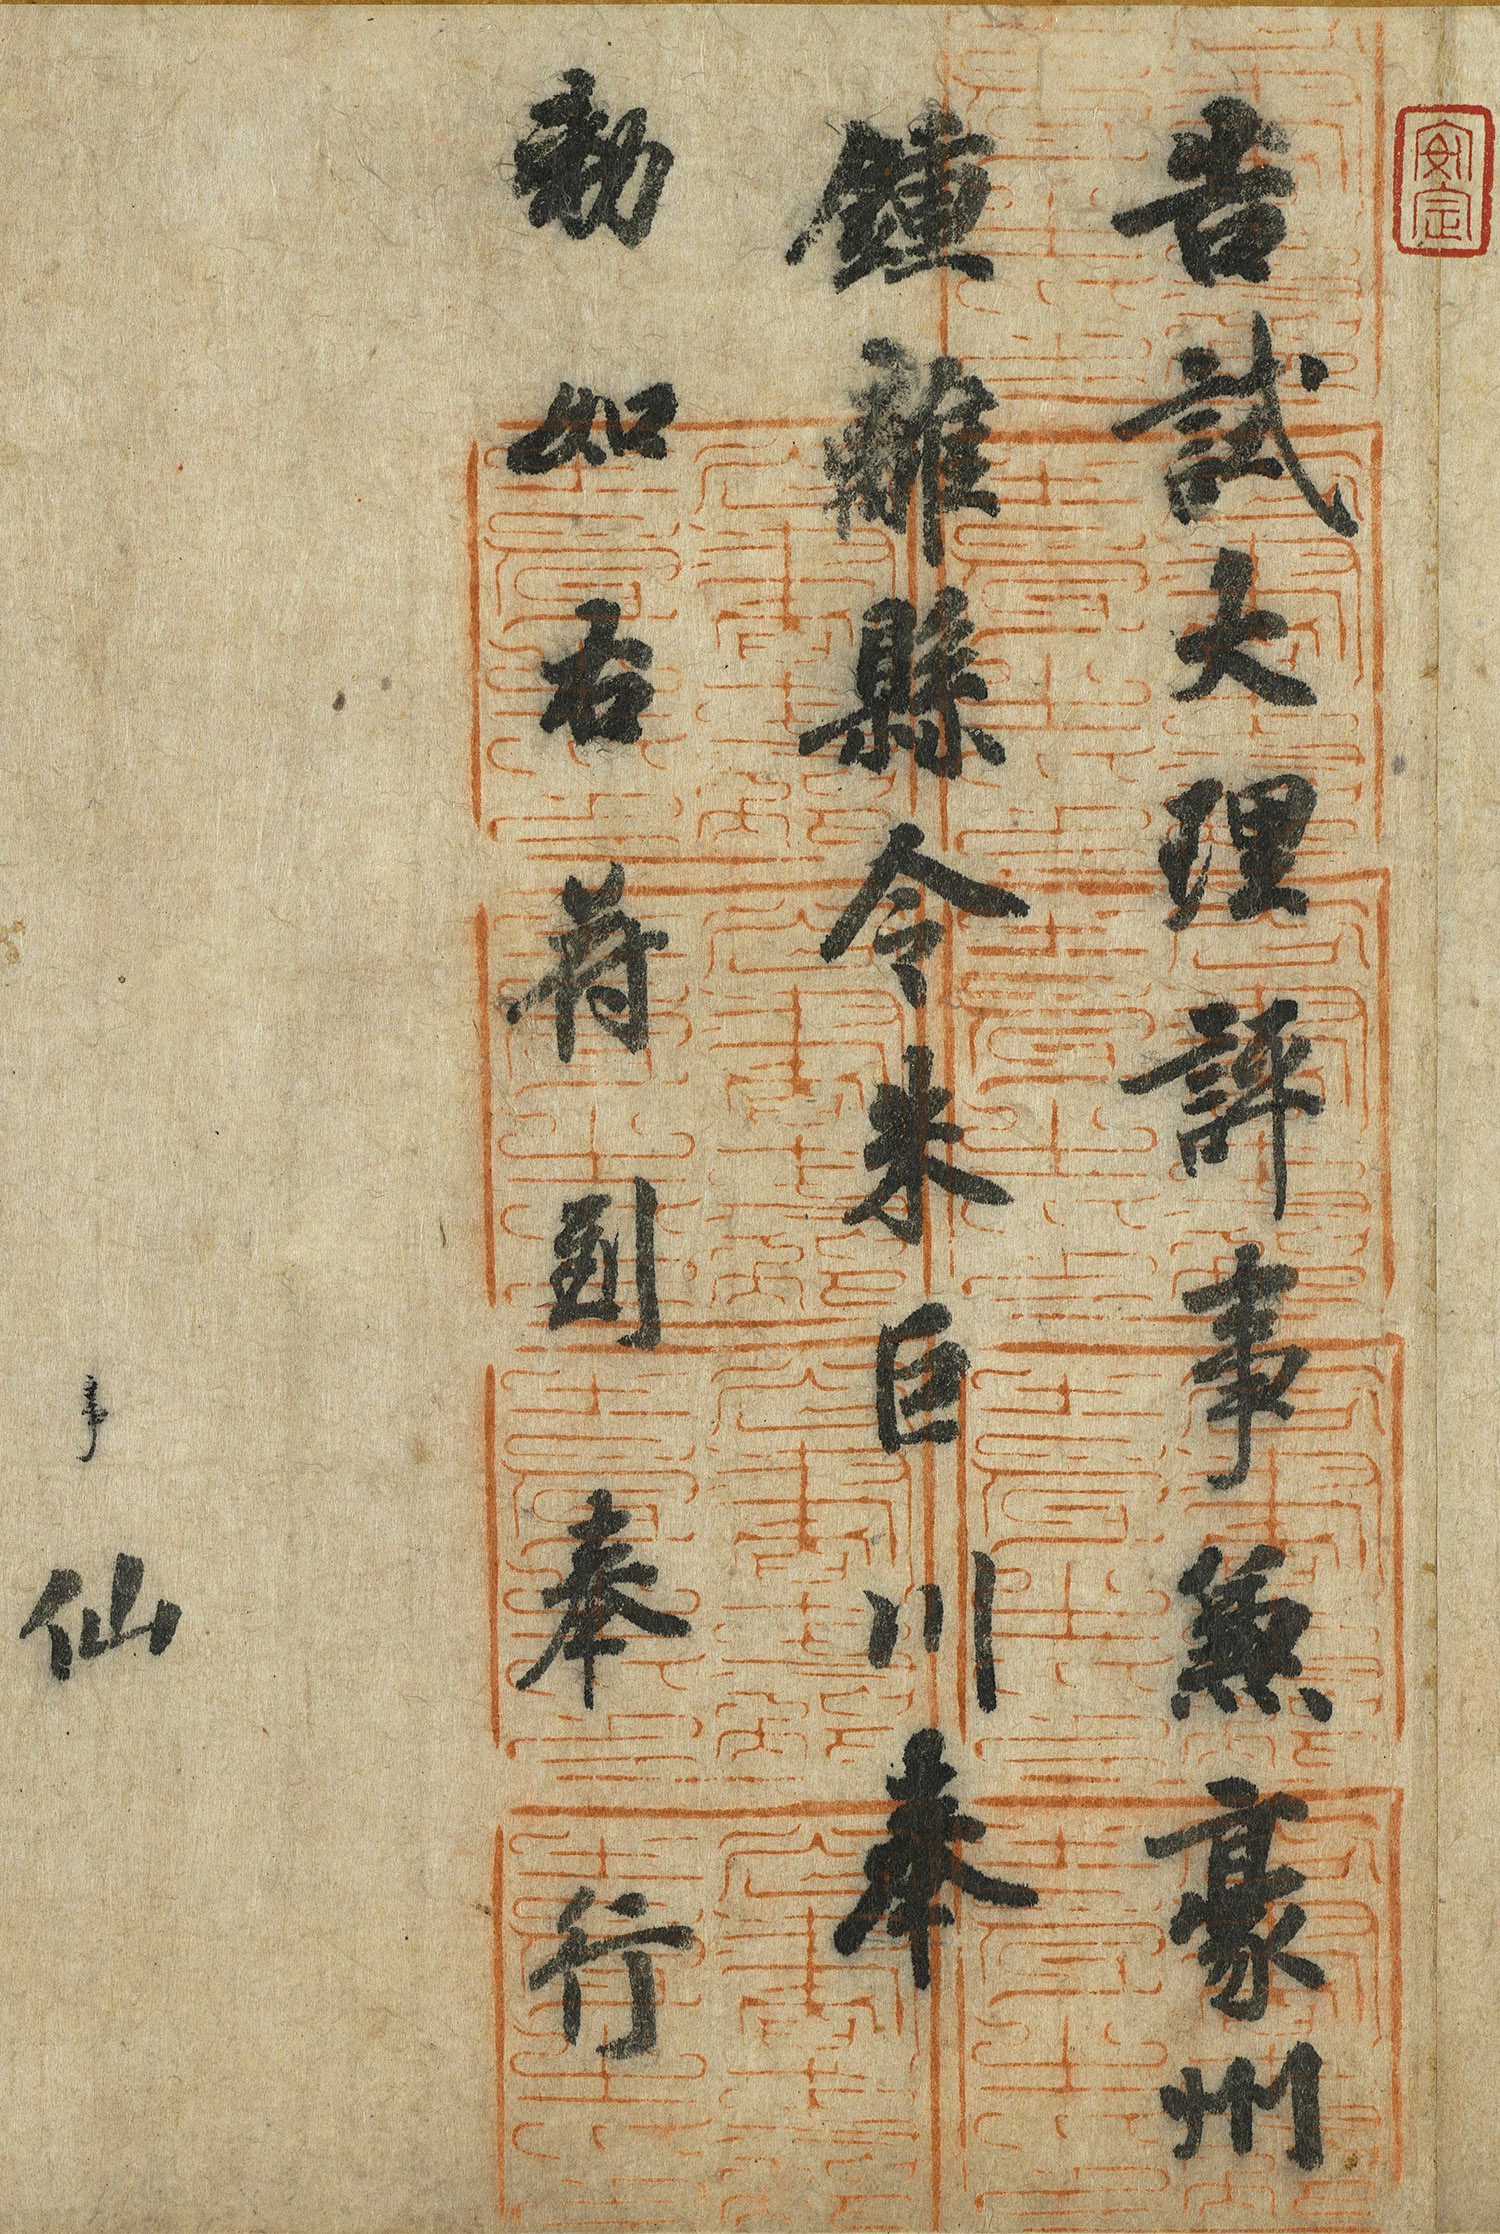 安定
告試大理評事兼豪州
鍾離縣令朱巨川奉
勑如右符到奉行
仙